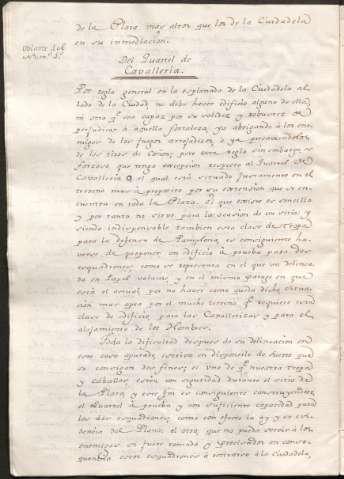 de la Plaza mas altos que los de la Ciudadela
en su inmediacion.
Volante del
Num.º 5.
Del Quartel de
Cavalleria.
Por regla general en la esplanada de la Ciudadela al
lado de la Ciudad no debe haver edificio alguno de esta
ni otro que sea capaz por su solidez y robustez de
perjudicar à aquella fortaleza, yà abrigando à los ene-
migos de los fuegos
de los tiros de cañon; pero esta regla sin embargo es
forzoso que tenga excepcion respecto al Quartel de
Cavalleria, el qual està situado justamente en el
terreno mas à proposito por su extension que se en-
cuentra en toda la Plaza. El que existe es sencillo
y por tanto no sirve para la ocasion de un sitio; y
siendo indispensable tambien esta clase de tropa
para la defensa de Pamplona, es consiguiente ha-
verse de proponer un edificio à prueba para dos
esquadrones como se representa en el que và delinea-
do en Papel volante y en el mismo parage en que
està el actual por no haver como queda dicho situa-
cion mas apta por el mucho terreno que requiere esta
clase de edificio para las Cavallerizas y para el
alojamiento de los Hombres.
Toda la dificultad despues de su delineacion en
este caso apurado consiste en disponerlo de suerte que
se consigan dos fines; el uno de que nuestra tropa
y cavallos estèn con seguridad durante el sitio de
la Plaza, y este fin es consiguiente construyendose
el Quartel à prueba y con suficiente capacidad para
los dos esquadrones, como con efecto la ay y es evi-
dencia del Plano: el otro que no pueda servir à los
enemigos en fuerte tomado y apostandose en conse-
quencia estos esquadrones à retirarse à la Ciudadela,